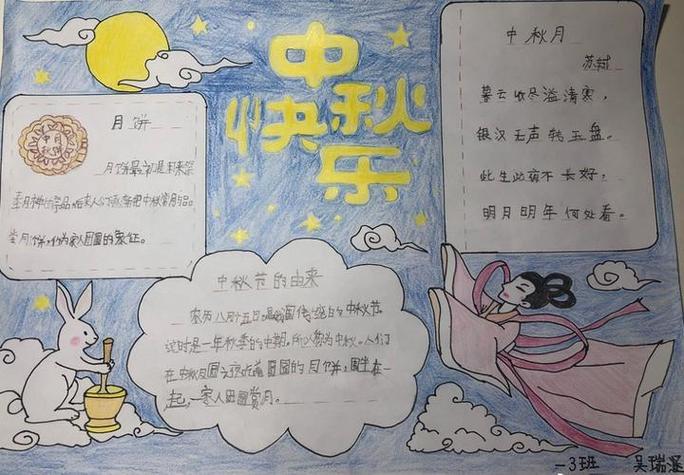 中秋
快乐
中秋月
苏轼
暮云收尽溢清寒，
银汉无声转玉盘。
此生此夜不长好，
明月明年何处看。
月饼
中秋
月饼最初是用来祭
赏月饼，作为家人团圆的象征。
中秋节的由来
农历八月十五日是我国传统的中秋节。
这时是一年秋季的中期，所以称为中秋。人们
在中秋月圆之夜吃着团圆的月饼，围坐在一
起，一家人团圆赏月。
一3班 吴瑞